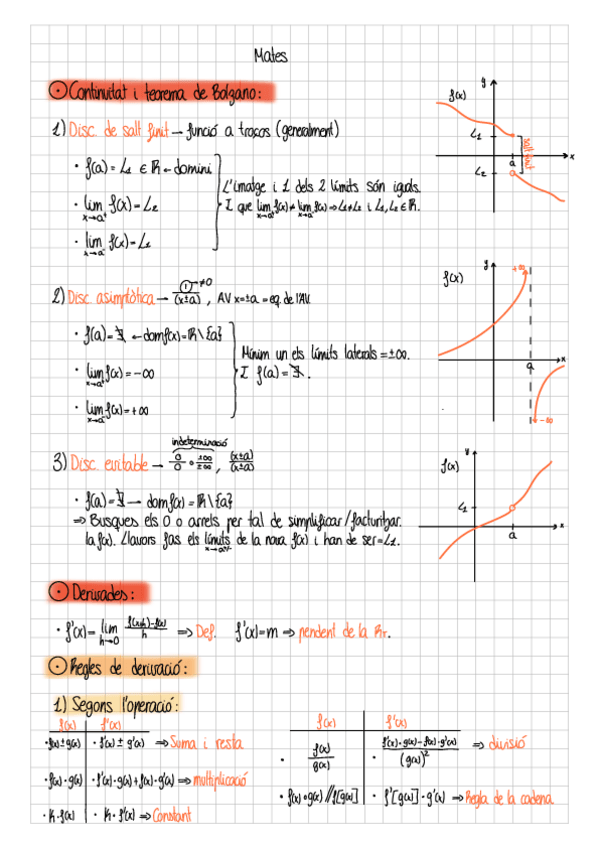 Mates
Continuitat i teorema de Bolzano:
1) Disc. de salt finit → funció a troços (generalment)
· f(a) = L₁ ∈ ℝ ← domini
· lim x→a⁺ f(x) = L₂
· lim x→a⁻ f(x) = L₁
L'imatge i 1 dels 2 límits són iguals.
I que lim x→a⁺ f(x) ≠ lim x→a⁻ f(x) ⇒ L₁≠L₂ i L₁, L₂ ∈ ℝ.
f(x)
y
L₁
L₂
a
x
salt finit
2) Disc asimptòtica → ①→≠0 / (x±a) , AV x=±a = eq. de l'AV.
· f(a) = ∄ ← domf(x) = ℝ\{a}
· lim x→a⁺ f(x) = -∞
· lim x→a⁻ f(x) = +∞
Mínim un els límits laterals = ±∞.
I f(a) = ∄.
f(x)
y
+∞
x
a
-∞
3) Disc. evitable → 0/0 o ±∞/±∞ , (x±a)/(x±a)
indeterminació
· f(a) = ∄ → domf(x) = ℝ\{a}
⇒ Busques els 0 o arrels per tal de simplificar/factoritzar.
la f(x). Llavors fas els límits x→a⁺/⁻ de la nova f(x) i han de ser = L₁.
f(x)
y
L₁
a
x
Derivades:
· f'(x) = lim h→0 f(x+h)-f(x) / h ⇒ Def. f'(x) = m ⇒ pendent de la Rr.
Regles de derivació:
1) Segons l'operació:
f(x) | f'(x)
· f(x) ± g(x) | · f'(x) ± g'(x) ⇒ Suma i resta
· f(x) · g(x) | · f'(x) · g(x) + f(x) · g'(x) ⇒ multiplicació
· K · f(x) | · K · f'(x) ⇒ Constant
f(x) | f'(x)
· f(x)/g(x) | · f'(x) · g(x) - f(x) · g'(x) / (g(x))² ⇒ divisió
· f(x) ∘ g(x) // f[g(x)] | · f'[g(x)] · g'(x) ⇒ Regla de la cadena